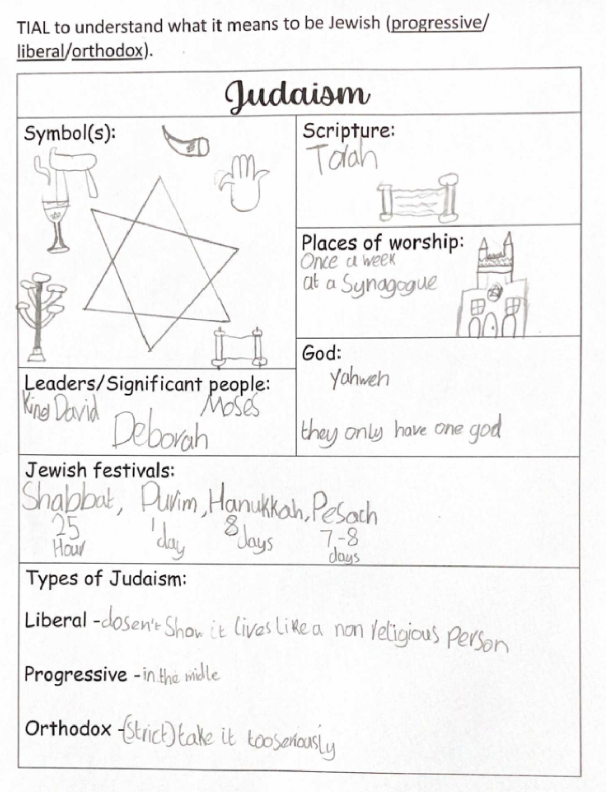 TIAL to understand what it means to be Jewish (progressive/
liberal/orthodox).
Judaism
Symbol(s):
Scripture:
Torah
Places of worship:
Once a week
at a Synagogue
God:
Yahweh
they only have one god
Leaders/Significant people:
King David
Moses
Deborah
Jewish festivals:
Shabbat, Purim, Hanukkah, Pesach
25 Hour
1 day
8 days
7-8 days
Types of Judaism:
Liberal - dosen't Show it lives like a non religious person
Progressive - in the midle
Orthodox - (strict) take it too seriously